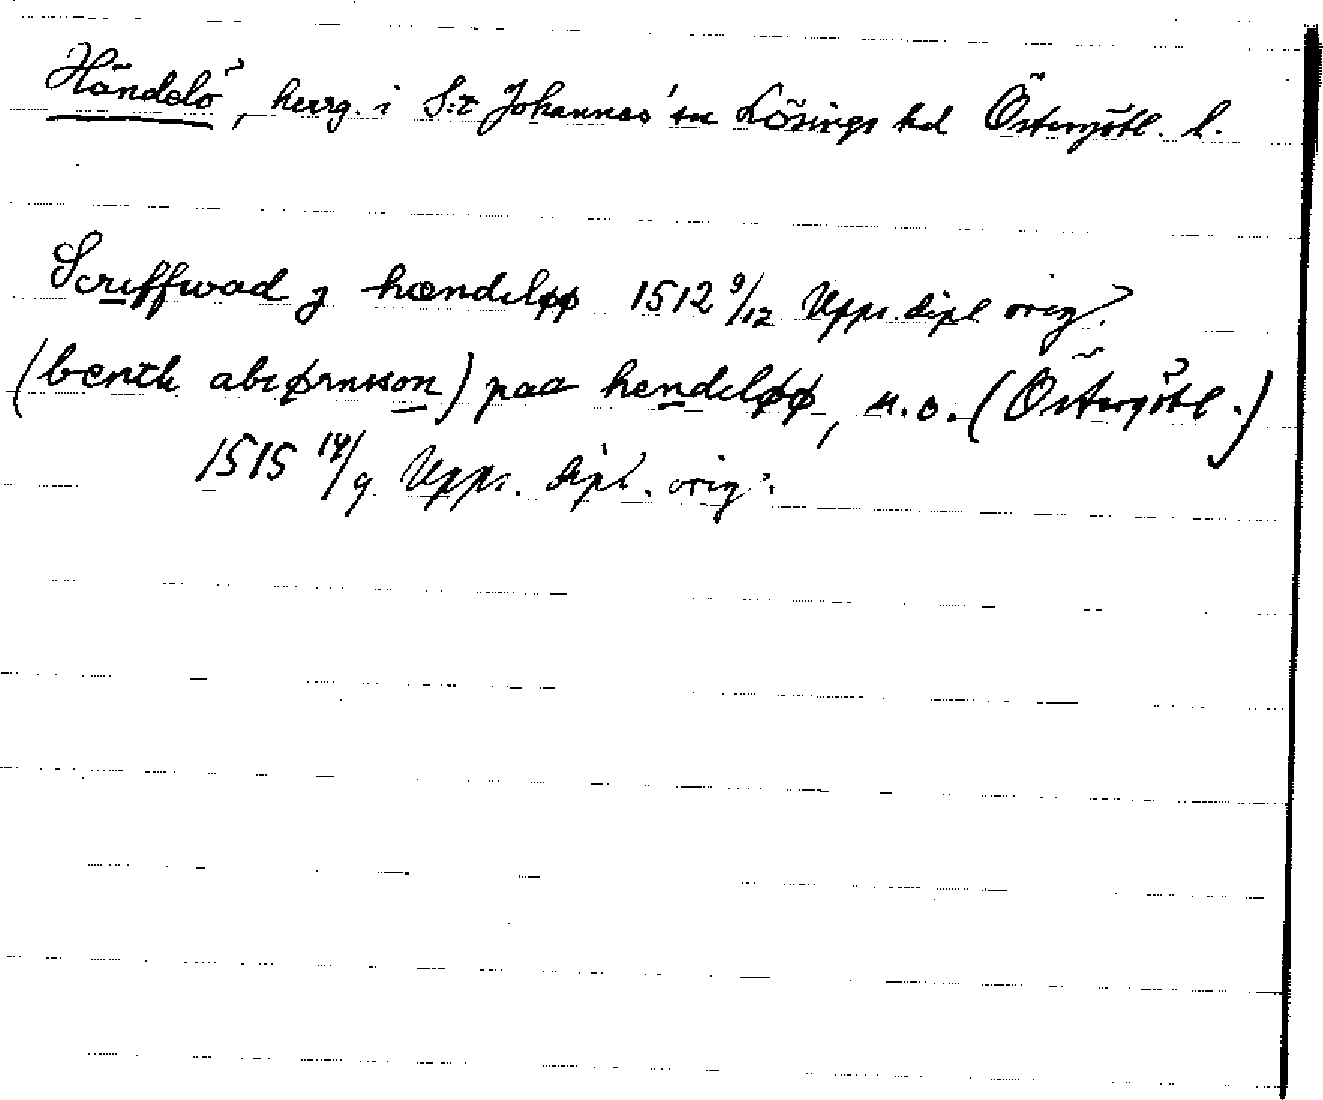 Händelö, herrg. i S:t Johannes sn Lösings hd Östergötl. l.
Screffwad j hændeløø 1512 9/12 Upps. dipl orig.
(bentk abiørnsson) paa hendeløø, u.o. (Östergötl.)
1515 14/9 Upps. dipl. orig.